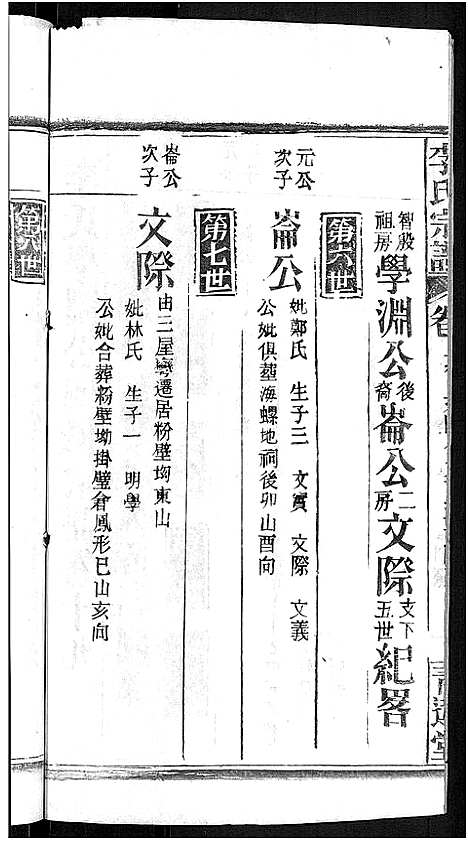 李氏宗譜
智殿祖房學淵公後裔崙公二房文際支下五世紀畧
第六世
元公次子
崙公
妣鄭氏 生子三 文實 文際 文義
公妣俱葬海螺地祠後卯山酉向
第七世
崙公次子
文際
由三屋灣遷居粉壁坳東山
妣林氏 生子一 明學
公妣合葬粉壁坳掛壁倉鳳形巳山亥向
第八世